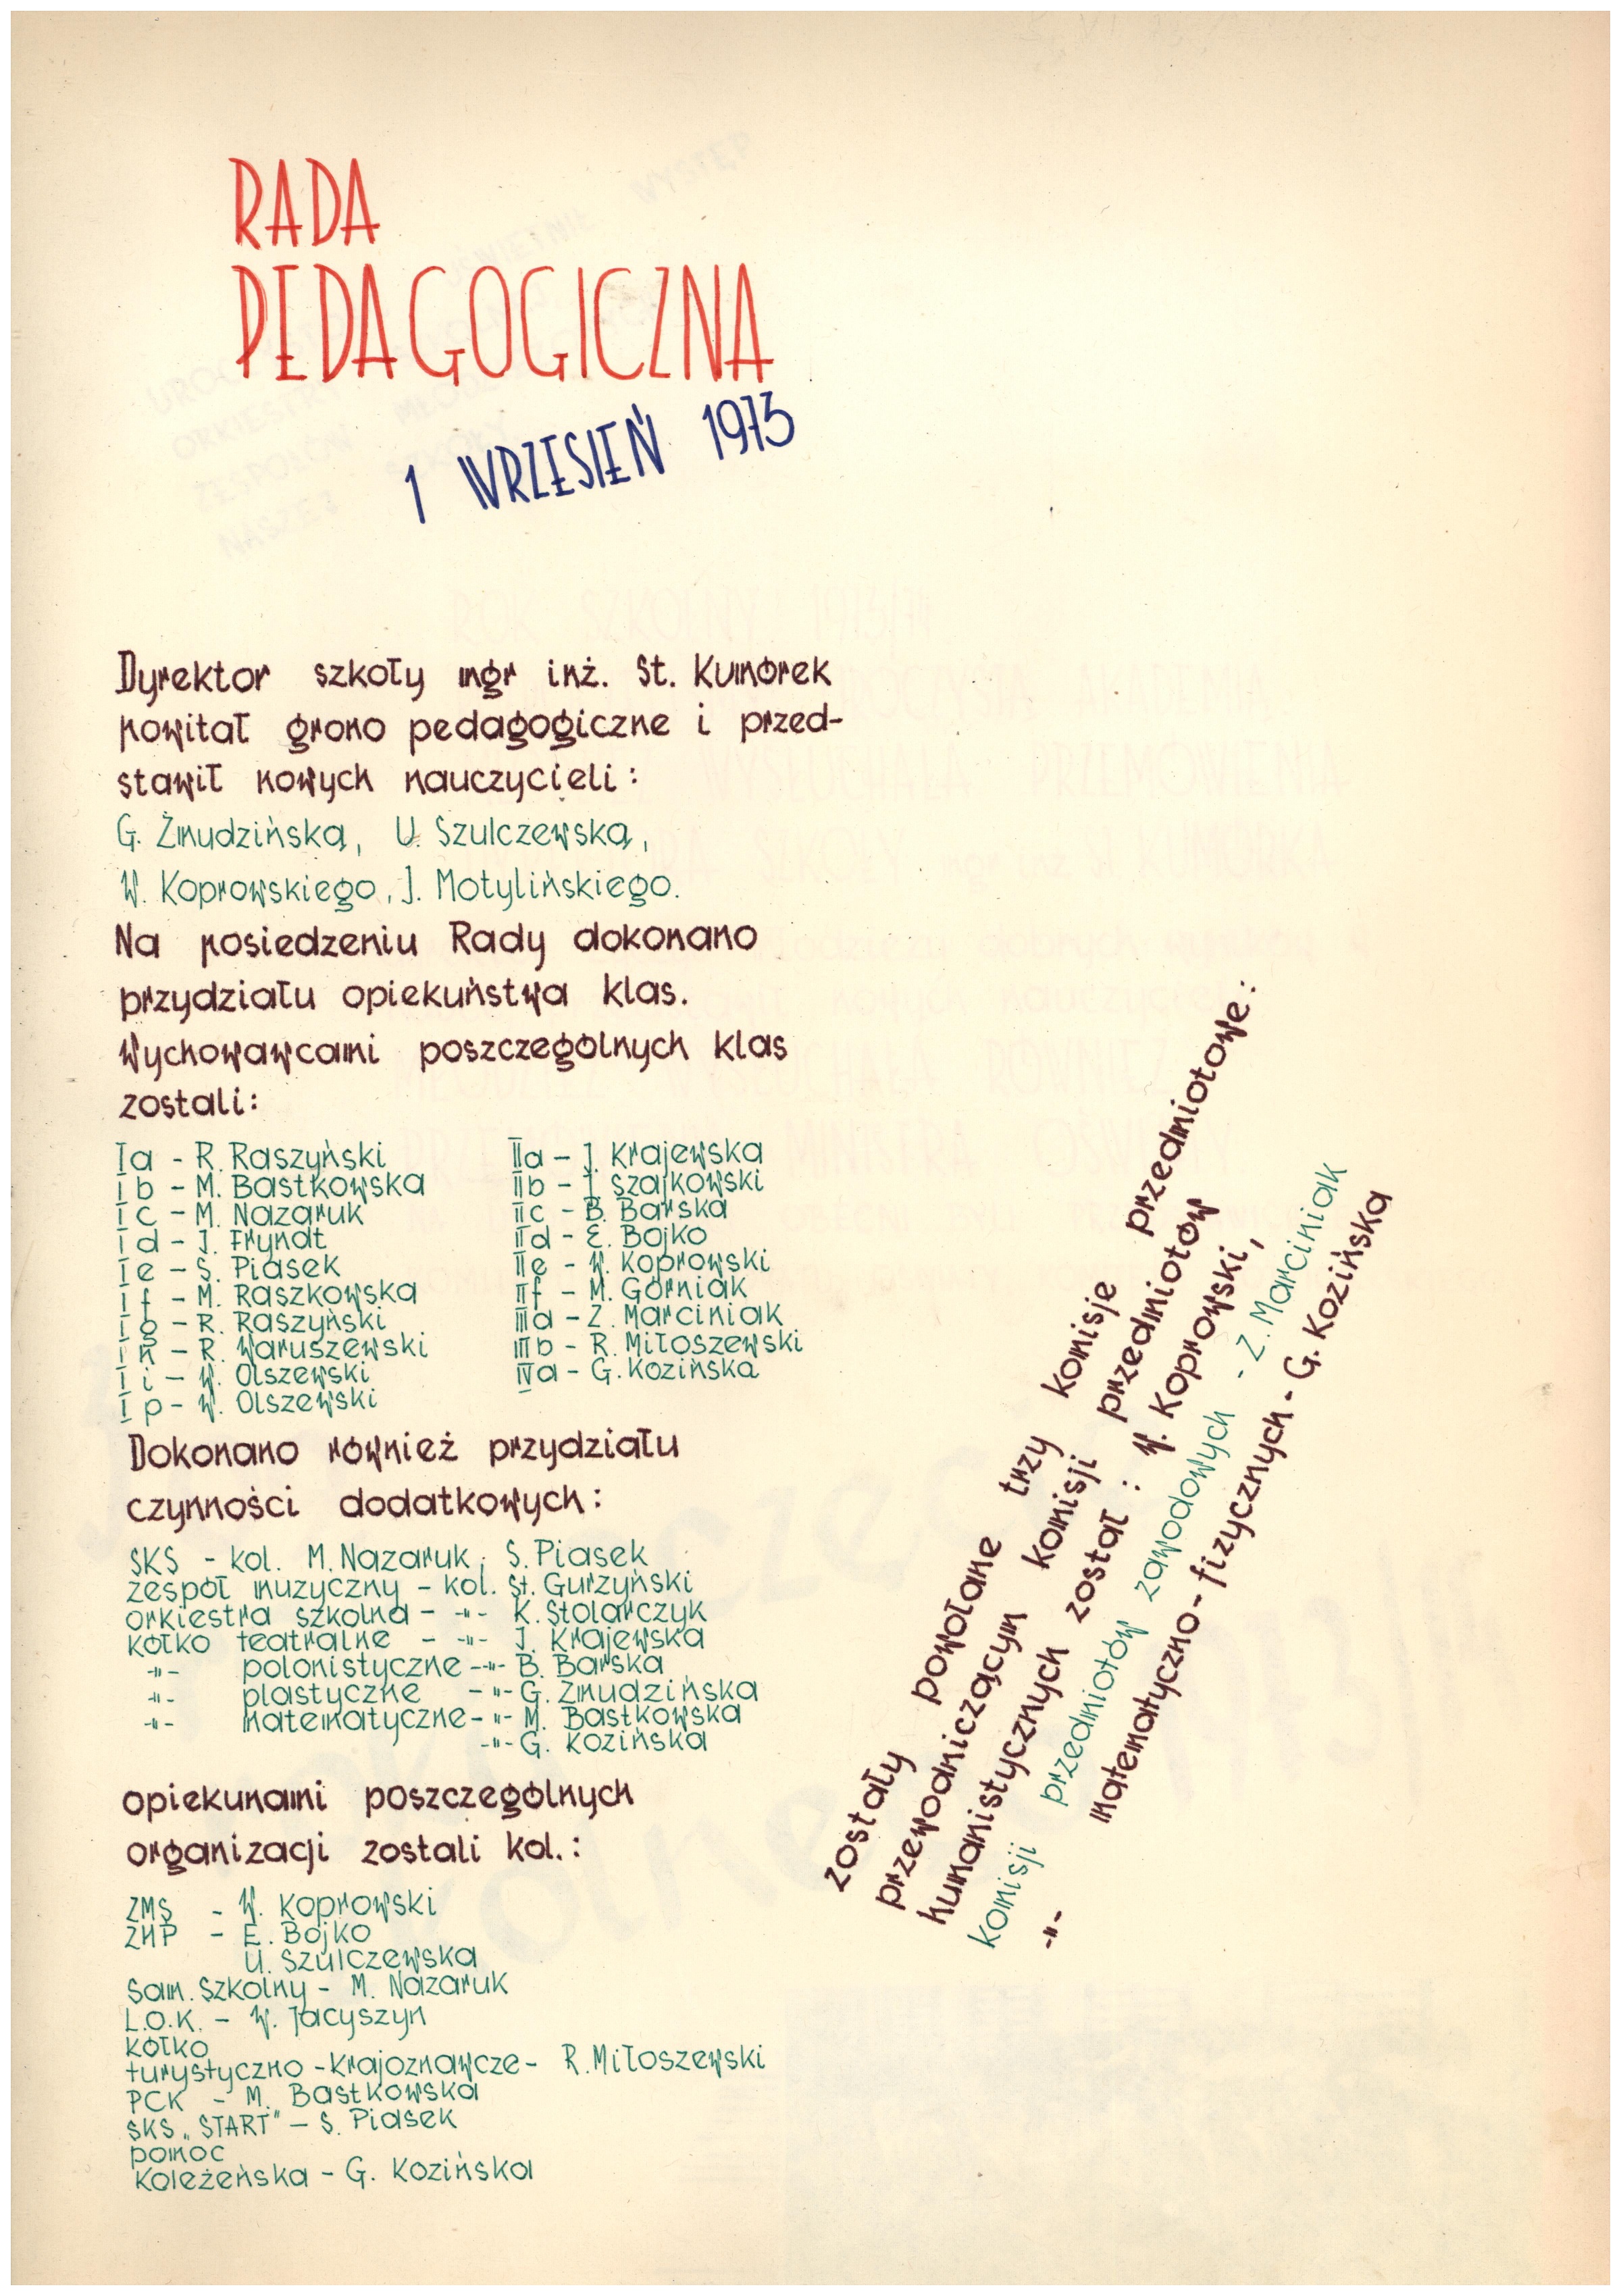 RADA
PEDAGOGICZNA
1 WRZESIEŃ 1973
Dyrektor szkoły mgr inż. St. Kumorek
powitał grono pedagogiczne i przed-
stawił nowych nauczycieli:
G. Żmudzińską, U. Szulczewską,
W. Koprowskiego, J. Motylińskiego.
Na posiedzeniu Rady dokonano
przydziału opiekuństwa klas.
Wychowawcami poszczególnych klas
zostali:
Ia - R. Raszyński
Ib - M. Bastkowska
Ic - M. Nazaruk
Id - J. Fryndt
Ie - S. Piasek
If - M. Raszkowska
Ig - R. Raszyński
Ih - R. Waruszewski
Ii - W. Olszewski
Ip - W. Olszewski
IIa - J. Krajewska
IIb - J. Szajkowski
IIc - B. Barska
IId - E. Bojko
IIe - W. Koprowski
IIf - M. Górniak
IIIa - Z. Marciniak
IIIb - R. Miłoszewski
IVa - G. Kozińska
Dokonano również przydziału
czynności dodatkowych:
SKS - kol. M. Nazaruk, S. Piasek
zespół muzyczny - kol. St. Gurzyński
orkiestra szkolna - -"- K. Stolarczyk
kółko teatralne - -"- J. Krajewska
-"- polonistyczne -"- B. Barska
-"- plastyczne -"- G. Żmudzińska
-"- matematyczne -"- M. Bastkowska
-"- G. Kozińska
opiekunami poszczególnych
organizacji zostali kol.:
ZMS - W. Koprowski
ZHP - E. Bojko
U. Szulczewska
Sam. Szkolny - M. Nazaruk
L.O.K. - W. Jacyszyn
kółko
turystyczno - krajoznawcze - R. Miłoszewski
PCK - M. Bastkowska
SKS „START" - S. Piasek
pomoc
koleżeńska - G. Kozińska
zostały powołane trzy komisje przedmiotowe:
przewodniczącym komisji przedmiotów
humanistycznych został: W. Koprowski,
komisji przedmiotów zawodowych - Z. Marciniak
-"- matematyczno - fizycznych - G. Kozińska